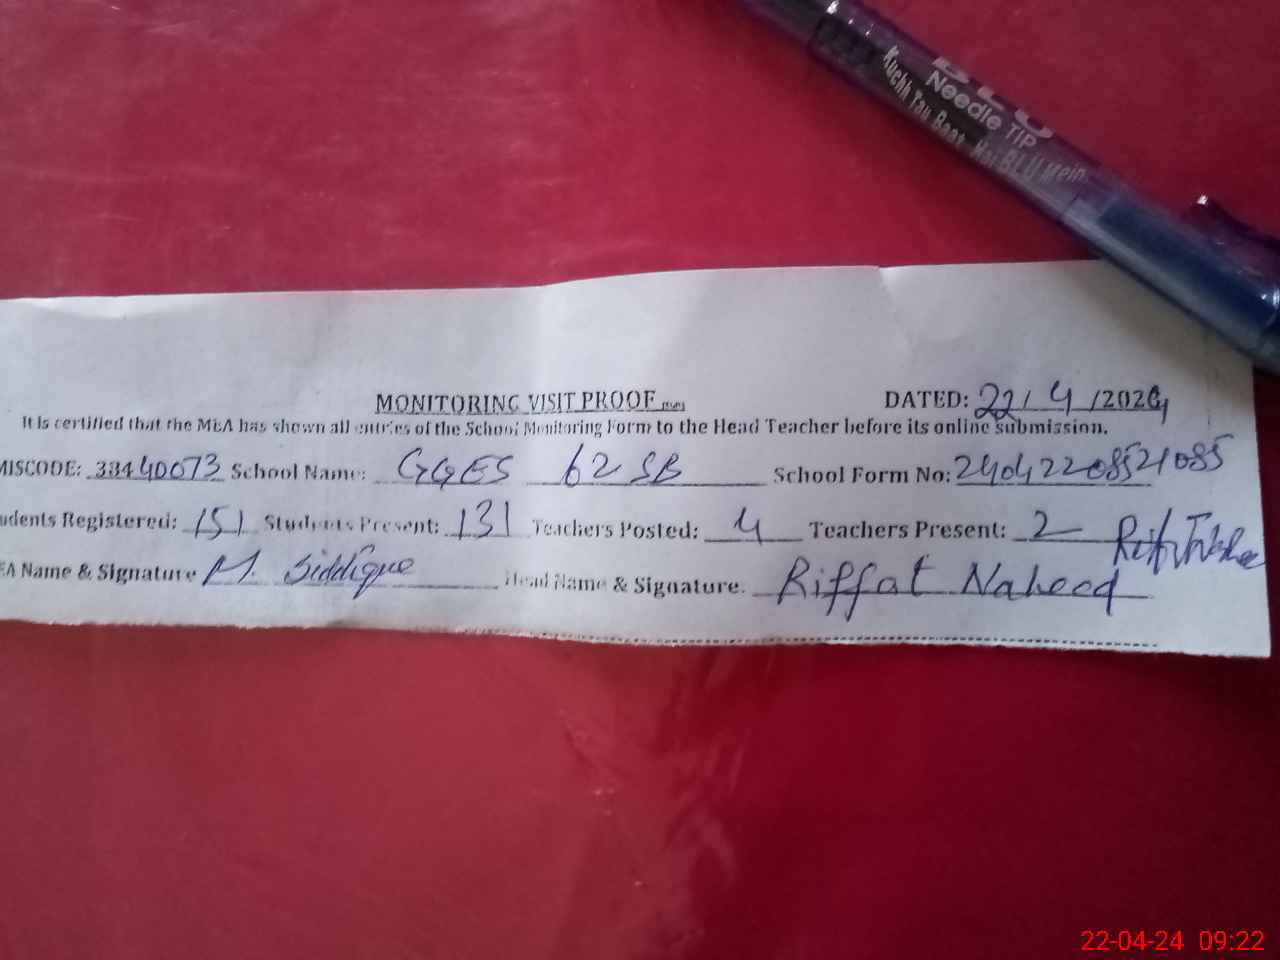 BLU
Needle TIP
Kuchh Tau Baat Hai BLU Mein
MONITORING VISIT PROOF DATED: 22/4/2024
It is certified that the MEA has shown all entries of the School Monitoring Form to the Head Teacher before its online submission.
MISCODE: 33440073 School Name: GGES 62 SB School Form No: 24042208521085
udents Registered: 151 Students Present: 131 Teachers Posted: 4 Teachers Present: 2
EA Name & Signature M. Siddique Head Name & Signature. Riffat Naheed
22-04-24 09:22